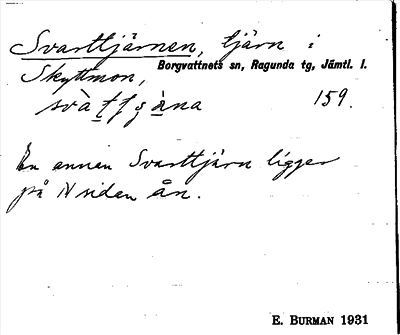 Svarttjärnen, tjärn i
Borgvattnets sn, Ragunda tg, Jämtl. l.
Skyttmon,
159.
En annan Svarttjärn ligger
på N sidan ån.
E. BURMAN 1931